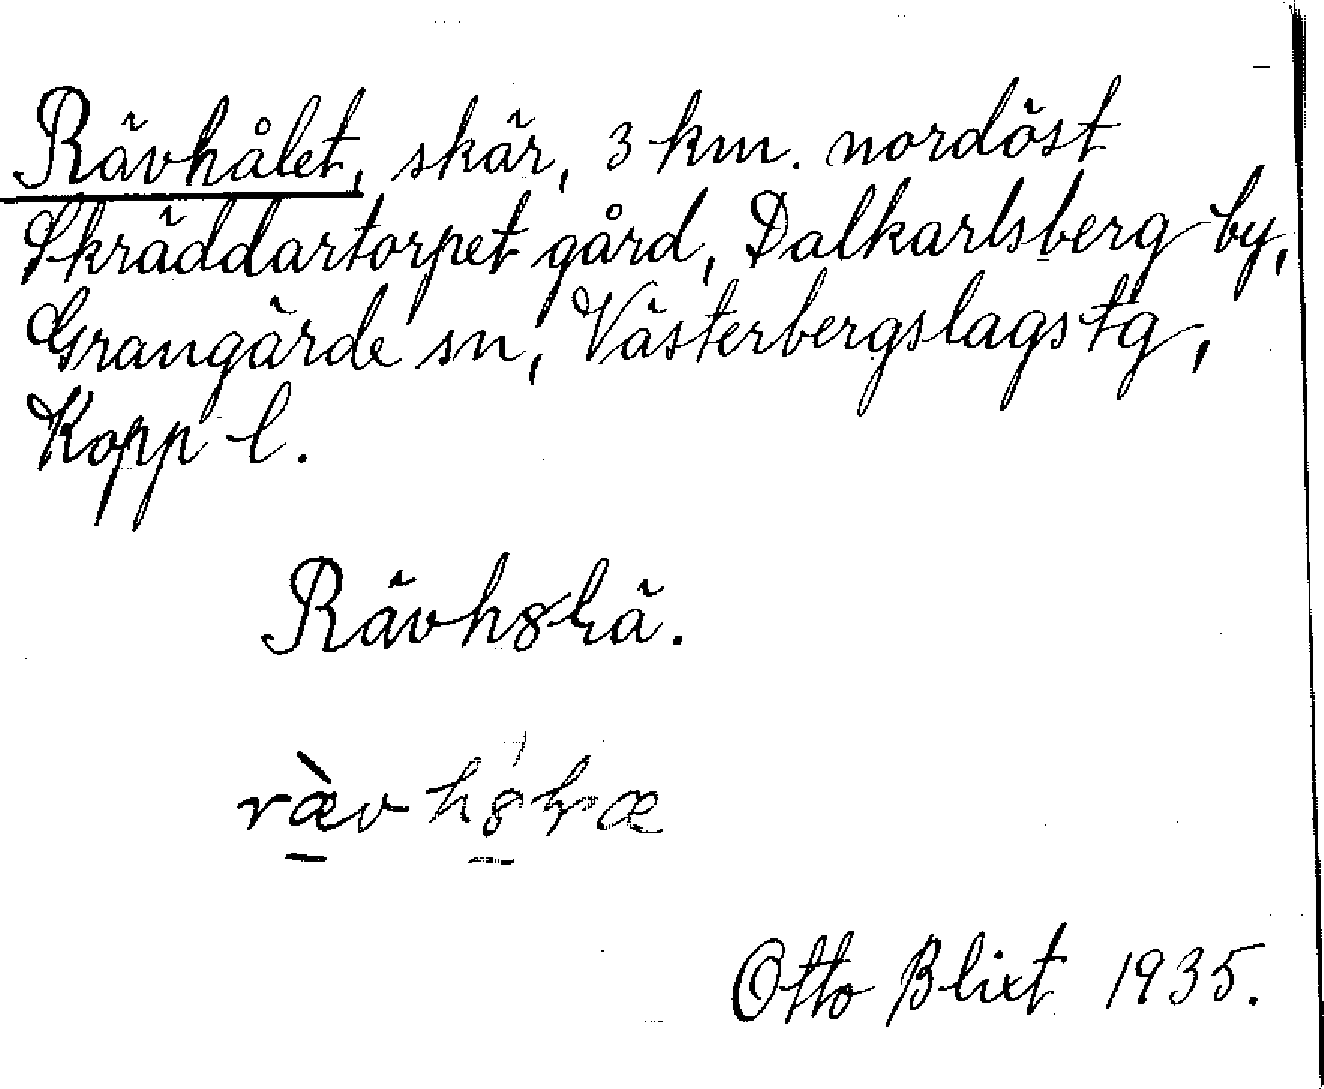 Rävhålet, skär, 3 km. nordöst
Skräddartorpet gård, Dalkarlsberg by,
Grangärde sn, Västerbergslags tg,
Kopp l.
Otto Blixt 1935.